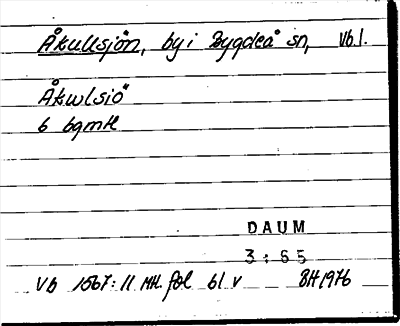 Åkullsjön, by i Bygdeå sn, Vb.l.
Åkwlsiö
6 bgmtl
DAUM
3:65
Vb 1567:11 Mtl. föl bl v BH 1976